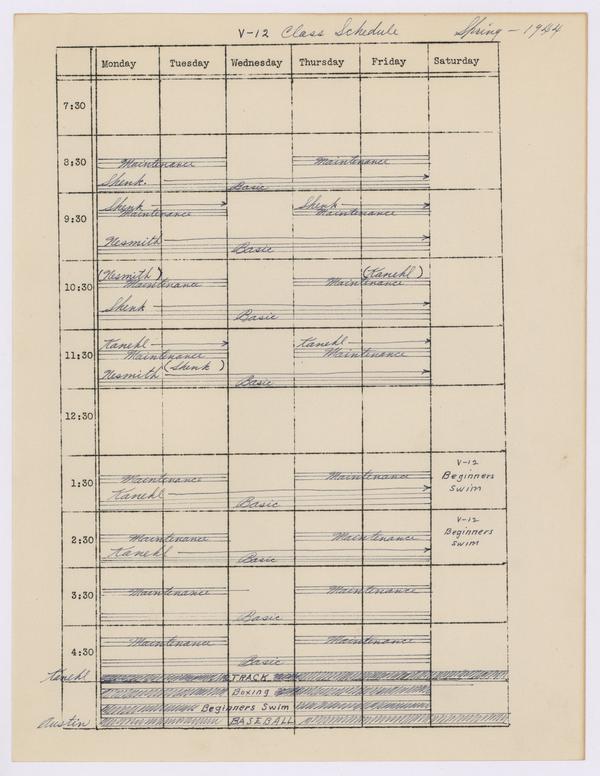 V-12 Class Schedule Spring - 1944
Monday Tuesday Wednesday Thursday Friday Saturday
7:30
8:30
Maintenance Maintenance
Shenk.
Basic
9:30
Shenk Shenk
Maintenance Maintenance
Nesmith
Basic
10:30
(Nesmith) (Kanehl)
Maintenance Maintenance
Shenk
Basic
11:30
Kanehl Kanehl
Maintenance Maintenance
Nesmith (Shenk)
Basic
12:30
1:30
V-12
Beginners
Swim
Maintenance Maintenance
Kanehl
Basic
2:30
V-12
Beginners
Swim
Maintenance Maintenance
Kanehl
Basic
3:30
Maintenance Maintenance
Basic
4:30
Maintenance Maintenance
Basic
Kanehl TRACK
Boxing
Beginners Swim
Austin BASEBALL